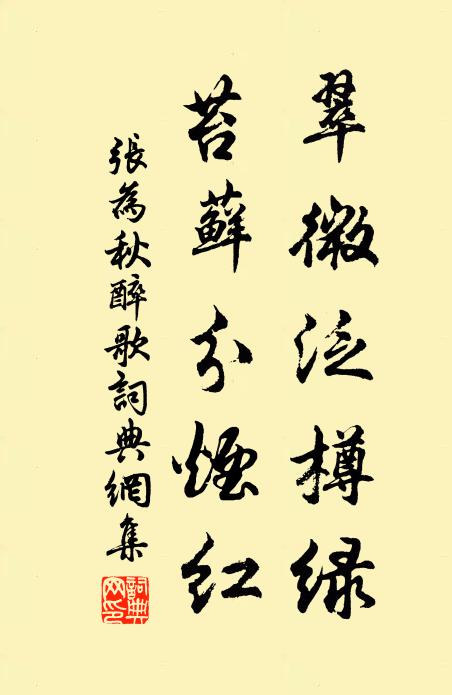 翠微泛樽緑
苔蘚分煙紅
張為秋醉歌詞典網集
詞典网印